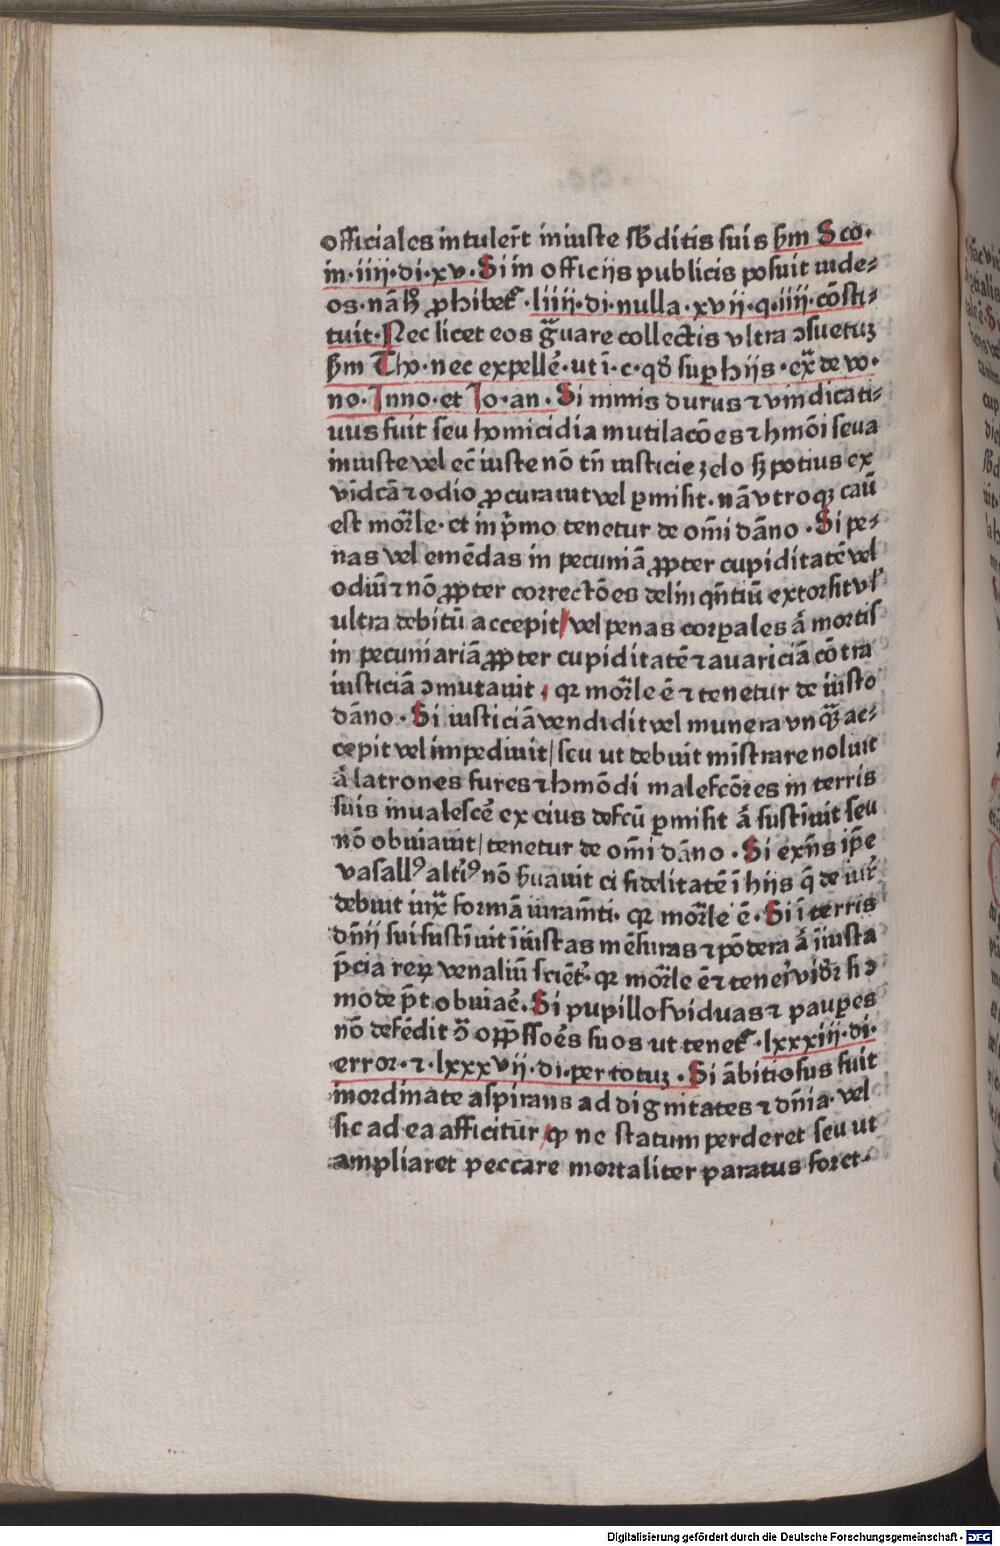 officiales intuler̄t iniuste sb̄ditis suis ẜm Sco·
in·iiij·di·xv·Si in officijs publicis posuit iude⸗
os·nā h̄ ꝓhibet᷑·liiij·di·nulla·xvij·q·iiij·cōsti⸗
tuit·Nec licet eos g̃uare collectis vltra ɔsuetuʒ
ẜm Tho·nec expellē·ut ī·c·qd̄ suꝑ hijs·ex̄ de vo·
no·Inno·et Jo·an·Si nimis durus ⁊ vindicati⸗
uus fuit seu homicidia mutilacōes ⁊ hmōi seua
iniuste vel ec̄ iuste nō tn̄ iusticie zelo sꝫ potius ex
vīdcā ⁊ odio ꝓcurauit vel ꝑmisit·nā vtroqꝫ caū
est mor̄le·et in p̄mo tenetur de om̄i dāno·Si pe⸗
nas vel emēdas in pecuniā ꝓpter cupiditatē vel
odiū ⁊ nō ꝓpter correctōes delinqn̄tiū extorsit vl̄
ultra debitū accepit/vel penas corꝑales ā mortis
in pecuniariā ꝓpter cupiditatē ⁊ auariciā cōtra
iusticiā ɔmutauit·qꝛ mor̄le ē ⁊ tenetur de iusto
dāno·Si iusticiā vendidit vel munera vnq̄ꝫ ac⸗
cepit vel impediuit/seu ut debuit mīstrare noluit
ā latrones fures ⁊ hmōdi malefcōres in terris
suis inualescē ex eius defcū ꝑmisit ā sustīuit seu
nō obuiauit/tenetur de om̄i dāno·Si exn̄s ip̄e
vasallꝰ altīꝰ nō ẜuauit ei fidelitatē ī hijs q̄ de iur̄
debuit iux̄ formā iuram̄ti·qꝛ mor̄le ē·Si ī terris
dn̄ij sui sustīuit īiustas mēsuras ⁊ pōdera ā īiusta
p̄cia reꝝ venaliū sciēt᷑·qꝛ mor̄le ē ⁊ tenet᷑ vid᷑r si ɔ
mode p̄t obuiaē·Si pupillos viduas ⁊ pauꝑes
nō defēdit ɔ̄ opp̄ssoēs suos ut tenet᷑·lxxxiij·di·
error·⁊·lxxxvij·di·per totuʒ·Si ābitiosus fuit
inordinate aspirans ad dignitates ⁊ dn̄ia·vel
sic ad ea afficitur/ꝙ ne statum perderet seu ut
ampliaret peccare mortaliter paratus foret·
Digitalisierung gefördert durch die Deutsche Forschungsgemeinschaft - DFG